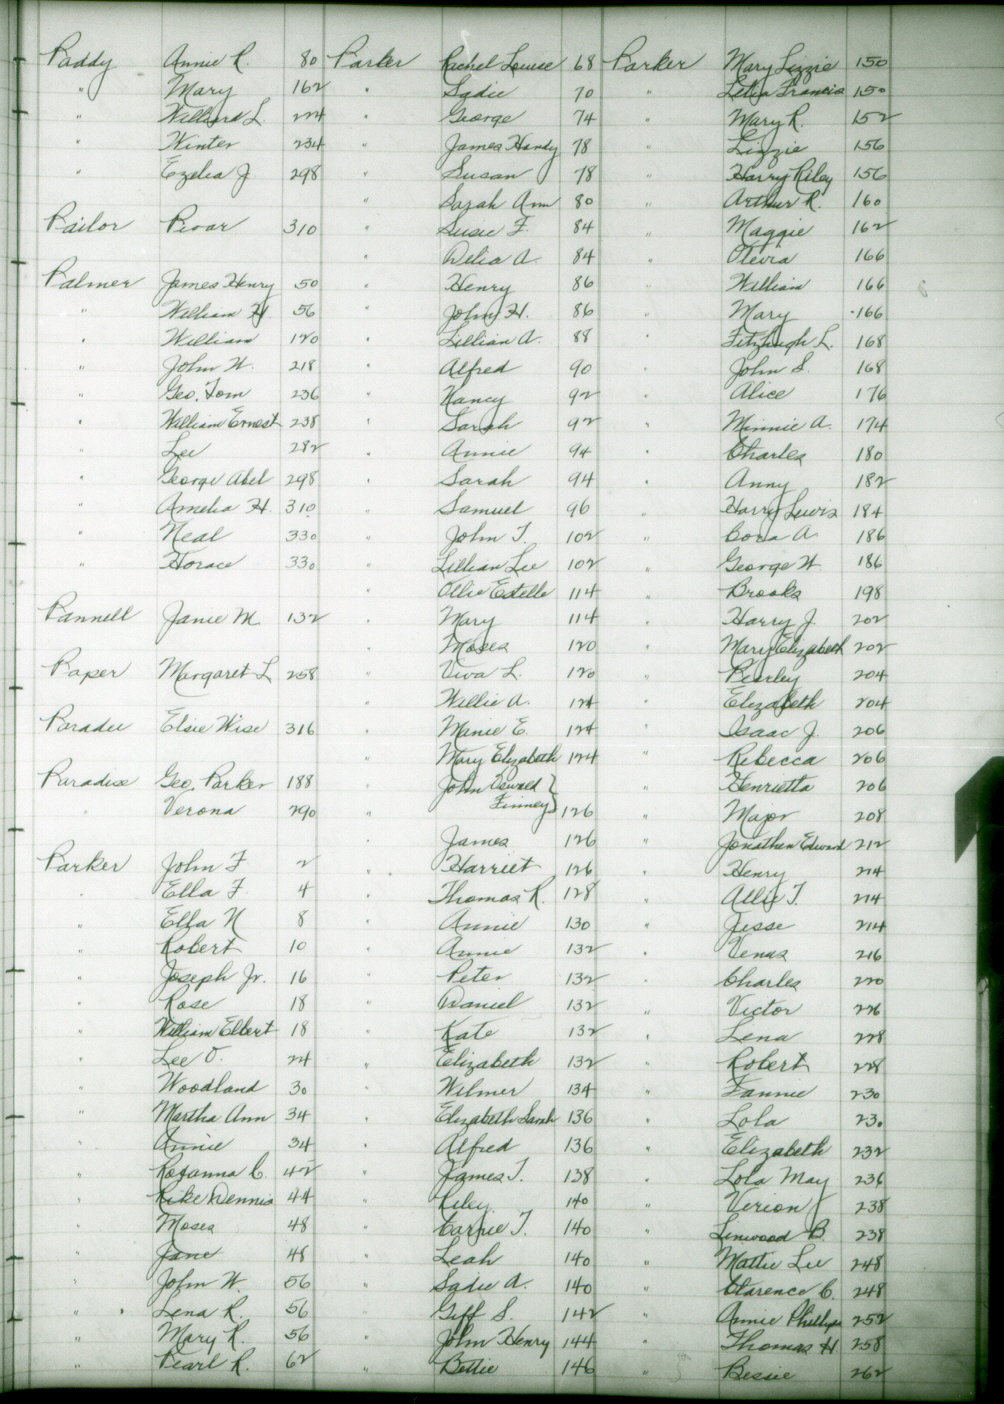 Paddy Annie R. 80
" Mary 162
" Willard L. 224
" Winter 234
" Ezelia J. 298
Pailor 310
Palmer James Henry 50
" William H. 56
" William 120
" John W. 218
" Geo. Tom 236
" William Ernest 238
" Lee 282
" George Abel 298
" Amelia H. 310
" Neal 330
" Horace 330
Pannell Janie M. 132
Paper Margaret L. 258
Paradee Elsie Wise 316
Paradise Geo. Parker 188
" Verona 290
Parker John F. 2
" Ella F. 4
" Ella N 8
" Robert 10
" Joseph Jr. 16
" Rose 18
" William Elbert 18
" Lee O. 24
" Woodland 30
" Martha Ann 34
" Annie 34
" Rosanna C. 42
" Dennis 44
" Moses 48
" Jane 48
" John W. 56
" Lena R. 56
" Mary R. 56
" Pearl R. 62
Parker Rachel Louise 68
" Sadie 70
" George 74
" James Handy 78
" Susan 78
" Sarah Ann 80
" Susie F. 84
" Delia A. 84
" Henry 86
" John H. 86
" Lillian A. 88
" Alfred 90
" Nancy 92
" Sarah 92
" Annie 94
" Sarah 94
" Samuel 96
" John T. 102
" Lillian Lee 102
" Ollie Estelle 114
" Mary 114
" Moses 120
" Viva L. 120
" Willie A. 124
" Manie E. 124
" Mary Elizabeth 124
" John Oswald
Finney } 126
" James 126
" Harriet 126
" Thomas R. 128
" Annie 130
" Annie 132
" Peter 132
" Daniel 132
" Kate 132
" Elizabeth 132
" Wilmer 134
" Elizabeth Sarah 136
" Alfred 136
" James T. 138
" Riley 140
" Carrie T. 140
" Leah 140
" Sadie A. 140
" Geff S. 142
" John Henry 144
" Bettie 146
Parker Mary Lizzie 150
" Letia Francis 150
" Mary R. 152
" Lizzie 156
" Harry Riley 156
" Arthur R. 160
" Maggie 162
" Olevia 166
" William 166
" Mary 166
" Fitzhugh L. 168
" John S. 168
" Alice 176
" Minnie A. 174
" Charles 180
" Anny 182
" Harry Lewis 184
" Cora A. 186
" George W. 186
" Brooks 198
" Harry J. 202
" Mary Elizabeth 202
" 204
" Elizabeth 204
" Isaac J. 206
" Rebecca 206
" Henrietta 206
" Major 208
" Jonathan Edward 212
" Henry 214
" Allie T. 214
" Jesse 214
" Venus 216
" Charles 220
" Victor 226
" Lena 228
" Robert 228
" Fannie 230
" Lola 230
" Elizabeth 232
" Lola May 236
" Verion 238
" Linwood B. 238
" Mattie Lee 248
" Clarence C. 248
" Annie Phillips 252
" Thomas H. 258
" Bessie 262